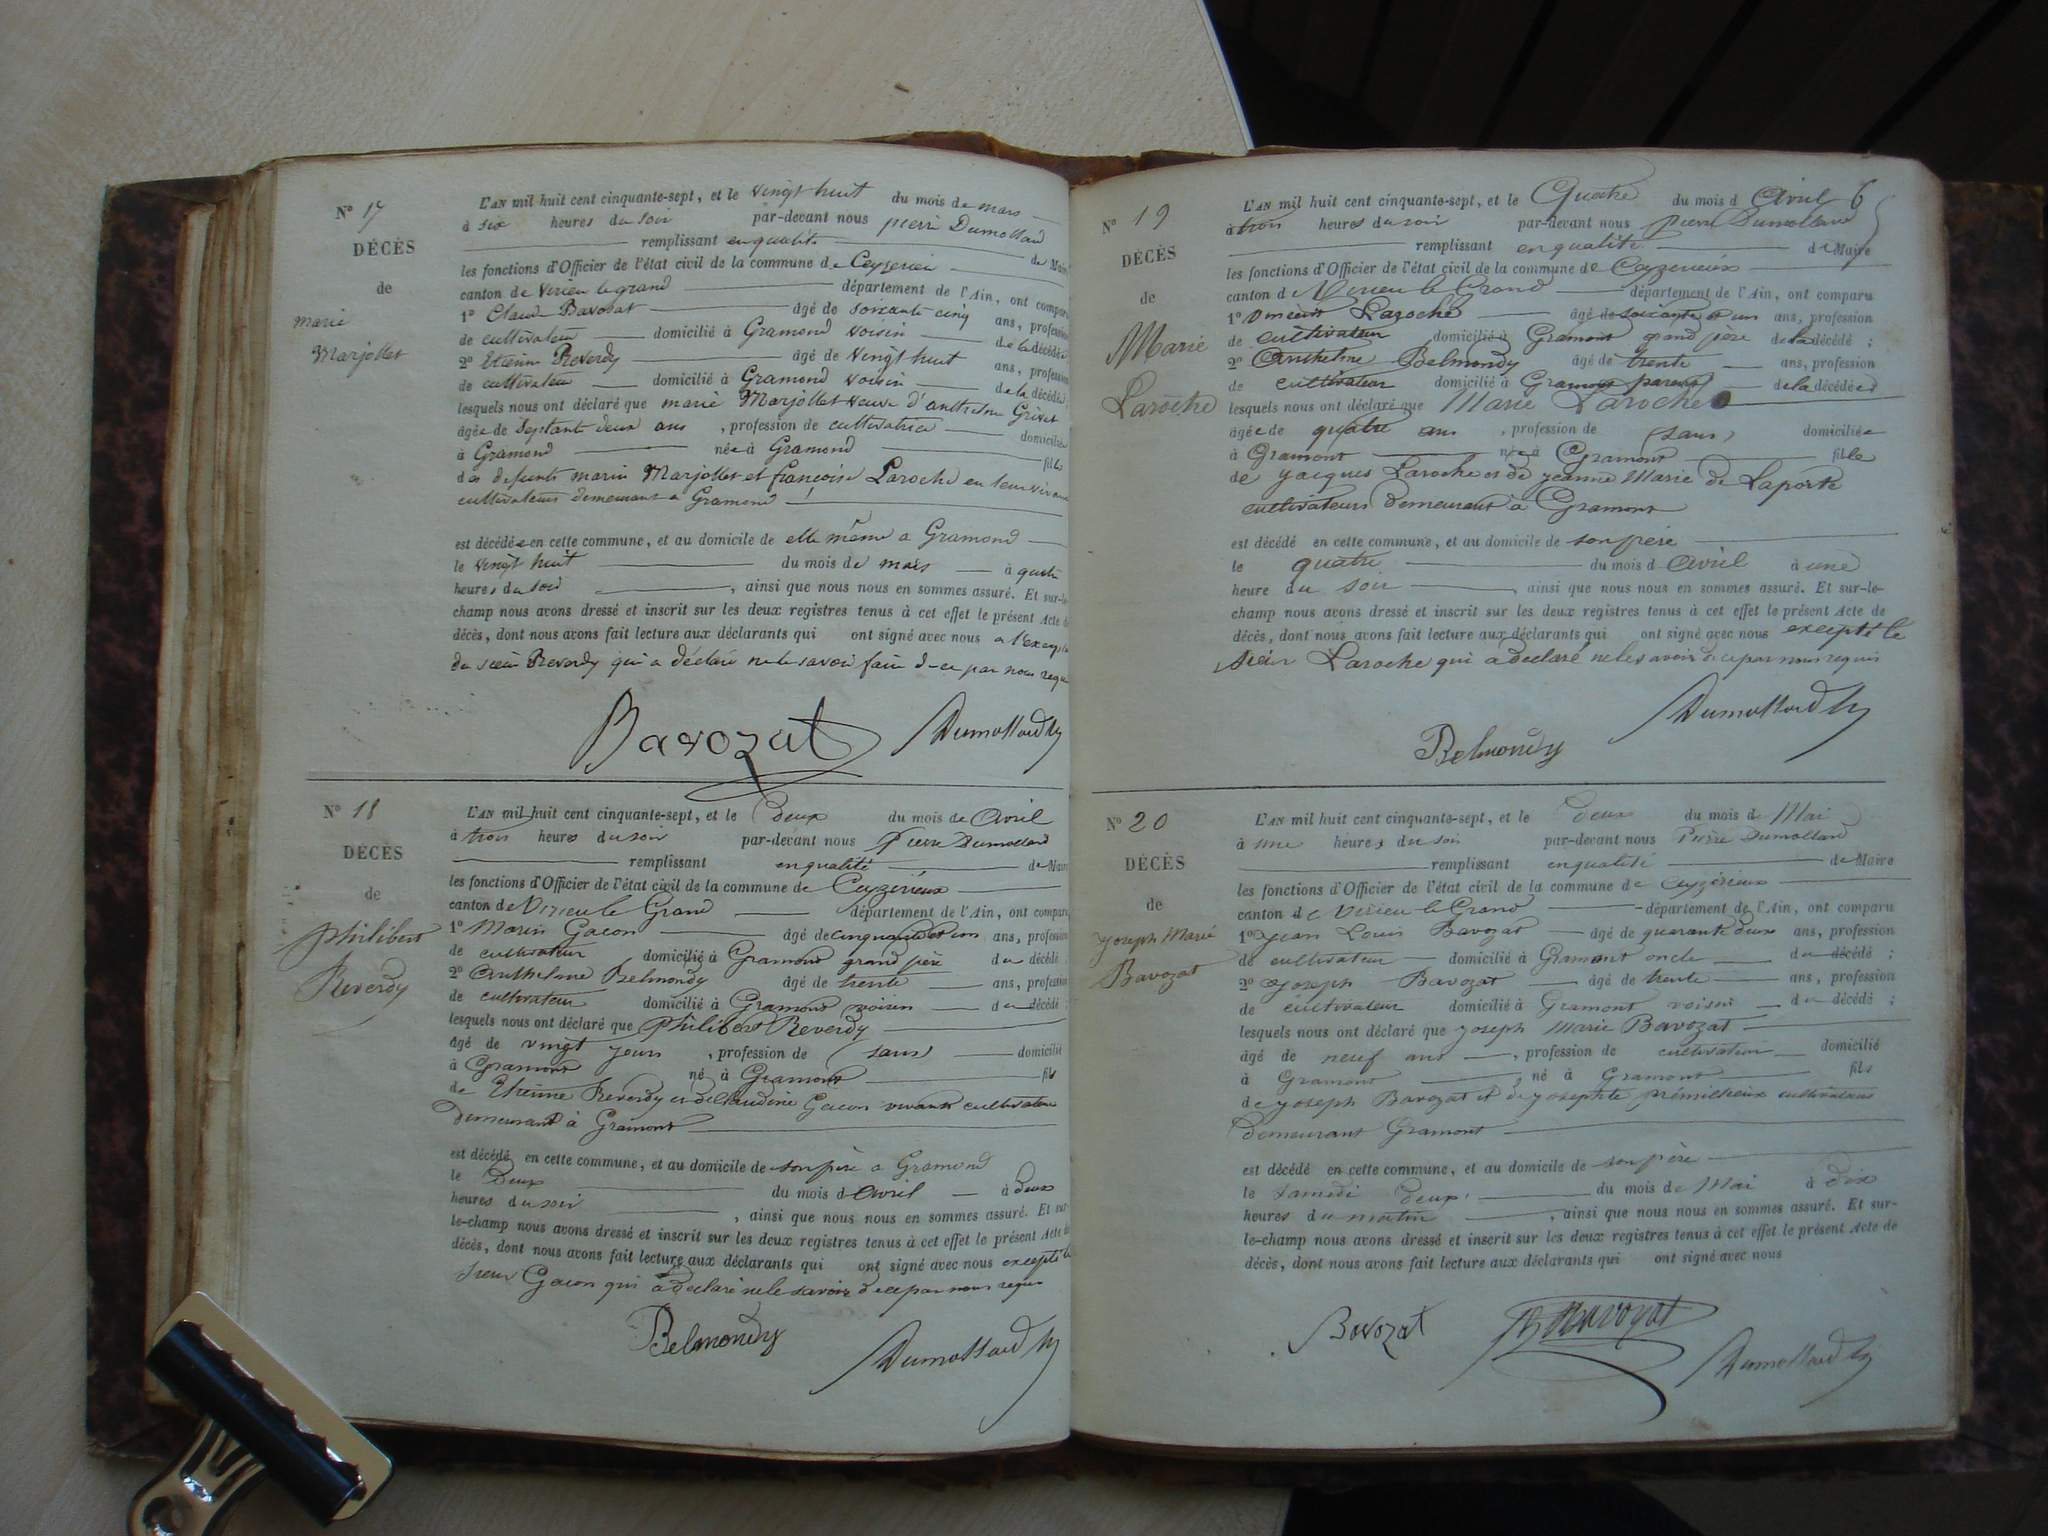 N° 17
DÉCÈS
de
marie
Marjollet
L'AN mil huit cent cinquante-sept, et le vingt huit du mois de mars
à six heures du soir par-devant nous pierre Dumollard
remplissant en qualité de Maire
les fonctions d'Officier de l'état civil de la commune de Ceyzerieu
canton de virieu le grand département de l'Ain, ont comparu
1° Claud Bavozat âgé de soixante cinq ans, profession
de cultivateur domicilié à Gramond voisin de la décédée
2° Etienn Reverdy âgé de vingt huit ans, profession
de cultivateur domicilié à Gramond voisin de la décédée
lesquels nous ont déclaré que marie Marjollet veuve d'anthelme Grivet
âgée de septante deux ans, profession de cultivatrice domiciliée
à Gramond née à Gramond fille
des defunts marin Marjollet et françoise Laroche en leur vivant
cultivateurs demeurant a Gramond
est décédée en cette commune, et au domicile de elle même a Gramond
le vingt huit du mois de mars à quatre
heures du soir, ainsi que nous nous en sommes assuré. Et sur-le-
champ nous avons dressé et inscrit sur les deux registres tenus à cet effet le présent Acte de
décès, dont nous avons fait lecture aux déclarants qui ont signé avec nous a l'exception
du sieur Reverdy qui a déclaré ne le savoir faire d-ce par nous requis
Bavozat Dumollard
N° 18
DÉCÈS
de
philibert
Reverdy
L'AN mil huit cent cinquante-sept, et le deux du mois de Avril
à trois heures du soir par-devant nous Pierre Dumollard
remplissant en qualité de Maire
les fonctions d'Officier de l'état civil de la commune de Ceyzérieux
canton de Virieu le Grand département de l'Ain, ont comparu
1° Marin Gacon âgé de cinquante et un ans, profession
de cultivateur domicilié à Gramond grand père du décédé
2° Anthelme Belmondy âgé de trente ans, profession
de cultivateur domicilié à Gramond voisin du décédé
lesquels nous ont déclaré que philibert Reverdy
âgé de vingt jours, profession de (sans) domicilié
à Gramont né à Gramont fils
de Etienne Reverdy et de Claudine Gacon vivants cultivateurs
demeurant à Gramont
est décédé en cette commune, et au domicile de son père a Gramond
le Deux du mois d Avril à deux
heures du soir, ainsi que nous nous en sommes assuré. Et sur-
le-champ nous avons dressé et inscrit sur les deux registres tenus à cet effet le présent Acte de
décès, dont nous avons fait lecture aux déclarants qui ont signé avec nous excepté le
sieur Gacon qui a declaré ne le savoir de ce par nous requis
Belmondy Dumollard
6
N° 19
DÉCÈS
de
Marie
Laroche
L'AN mil huit cent cinquante-sept, et le Quatre du mois d Avril
à trois heures du soir par-devant nous pierre Dumollard
remplissant en qualité de Maire
les fonctions d'Officier de l'état civil de la commune de Ceyzerieux
canton de Virieu le Grand département de l'Ain, ont comparu
1° vincent Laroche âgé de soixante et un ans, profession
de cultivateur domicilié à Gramont grand père de la décédé ;
2° Anthelme Belmondy âgé de trente ans, profession
de cultivateur domicilié à Gramont parent de la décédée
lesquels nous ont déclaré que Marie Laroche
âgée de quatre ans, profession de (sans) domiciliée
à Gramont née à Gramont fille
de Jacques Laroche et de jeanne Marie de Laporte
cultivateurs demeurant à Gramont
est décédé en cette commune, et au domicile de son père
le quatre du mois d Avril à une
heure du soir, ainsi que nous nous en sommes assuré. Et sur-le-
champ nous avons dressé et inscrit sur les deux registres tenus à cet effet le présent Acte de
décès, dont nous avons fait lecture aux déclarants qui ont signé avec nous excepté le
sieur Laroche qui a declaré ne le savoir de ce par nous requis
Dumollard
Belmondy
N° 20
DÉCÈS
de
joseph Marie
Bavozat
L'AN mil huit cent cinquante-sept, et le deux du mois de Mai
à une heures du soir par-devant nous Pierre Dumollard
remplissant en qualité de Maire
les fonctions d'Officier de l'état civil de la commune de ceyzérieux
canton de Virieu le Grand département de l'Ain, ont comparu
1° jean Louis Bavozat âgé de quarante deux ans, profession
de cultivateur domicilié à Gramont oncle du décédé ;
2° joseph Bavozat âgé de trente ans, profession
de cultivateur domicilié à Gramont voisin du décédé ;
lesquels nous ont déclaré que joseph Marie Bavozat
âgé de neuf ans, profession de cultivateur domicilié
à Gramont, né à Gramont fils
de joseph Bavozat et de josephte prémillieux cultivateurs
demeurant Gramont
est décédé en cette commune, et au domicile de son père
le samedi deux du mois de Mai à dix
heures du matin, ainsi que nous nous en sommes assuré. Et sur-
le-champ nous avons dressé et inscrit sur les deux registres tenus à cet effet le présent Acte de
décès, dont nous avons fait lecture aux déclarants qui ont signé avec nous
Bavozat Bavozat
Dumollard